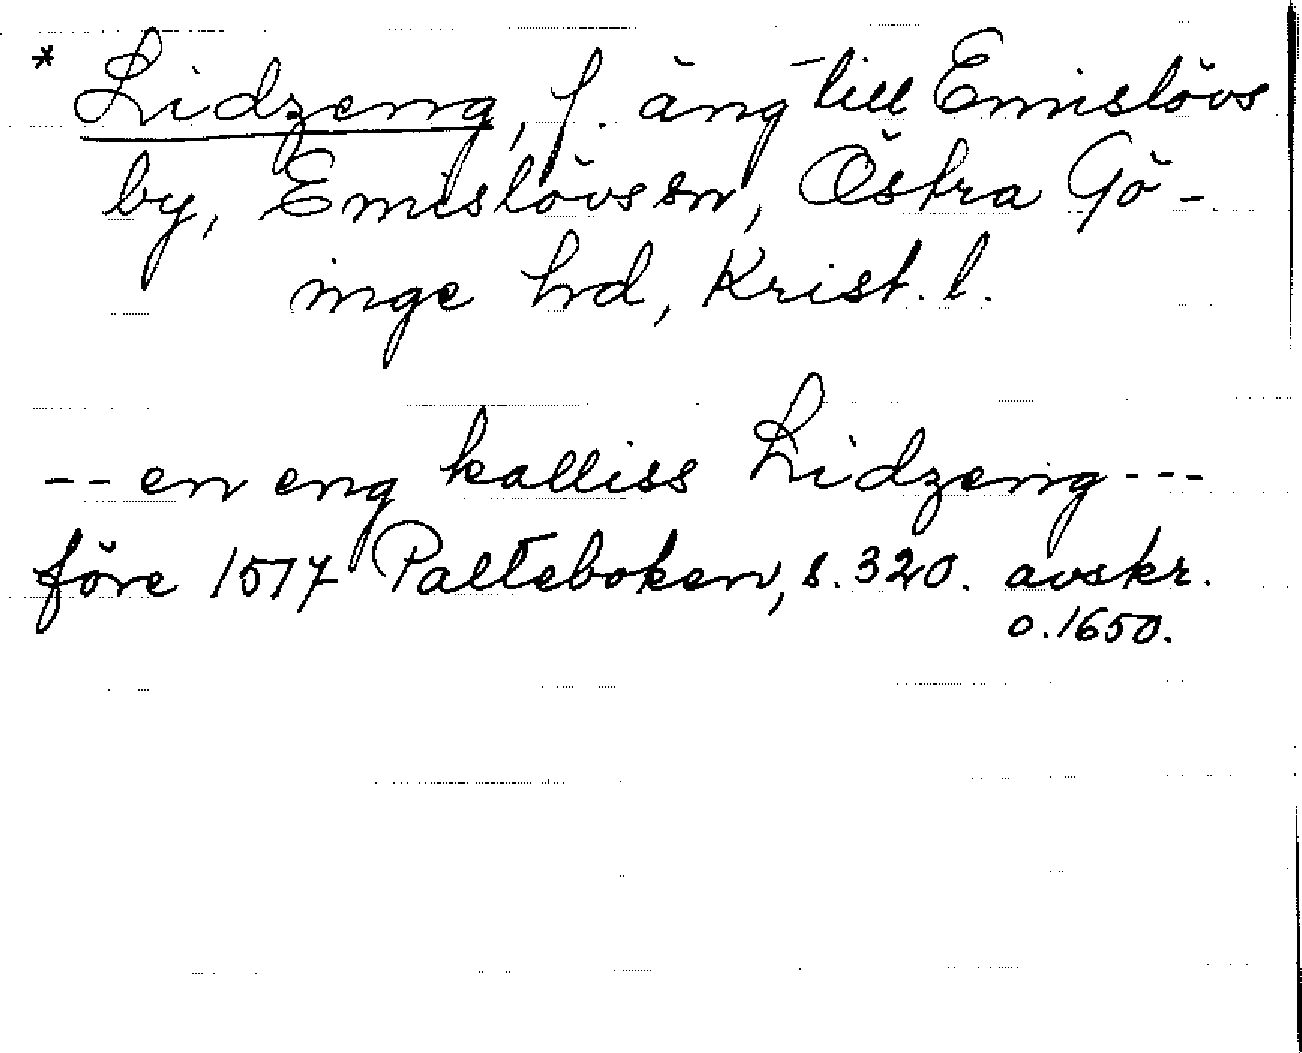 * Lidzeng, f. äng till Emislövs
by, Emislövs sn, Östra Gö-
inge hd, Krist. l.
-- en eng kalliss Lidzeng ---
före 1517 Palteboken, s. 320. avskr.
o. 1650.